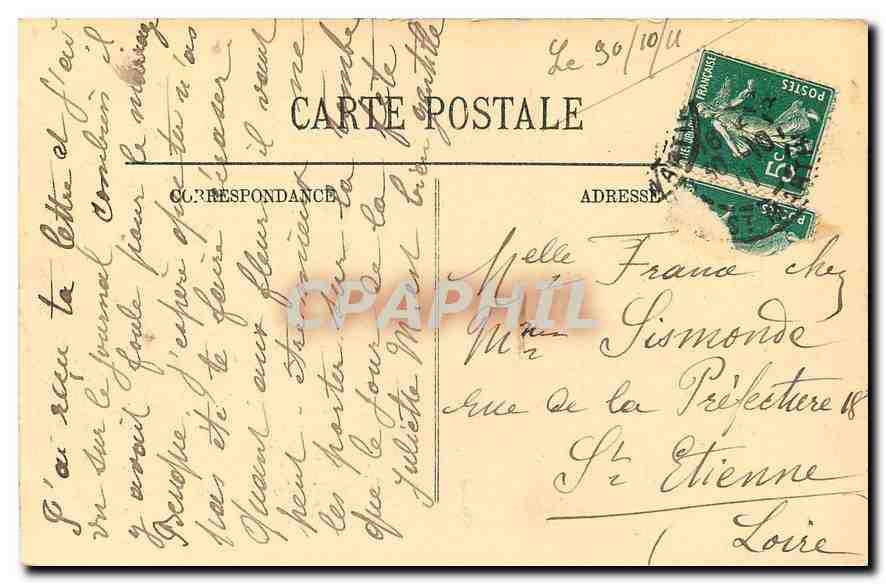 Le 30/10/11
CARTE POSTALE
CORRESPONDANCE
ADRESSE
FRANÇAISE
POSTES
5c
J'ai reçu ta lettre et j'ai
vu sur le journal combien il
y avait foule pour le mariage
j'espère que tu n'as
pas été te faire écraser
Quant aux fleurs il vaut
peut-être mieux ne
les porter sur la tombe
que le jour de la fête
Juliette M est bien gentille
Melle France chez
Mme Sismonde
rue de la Préfecture 18
St Etienne
(Loire
CPAPHIL